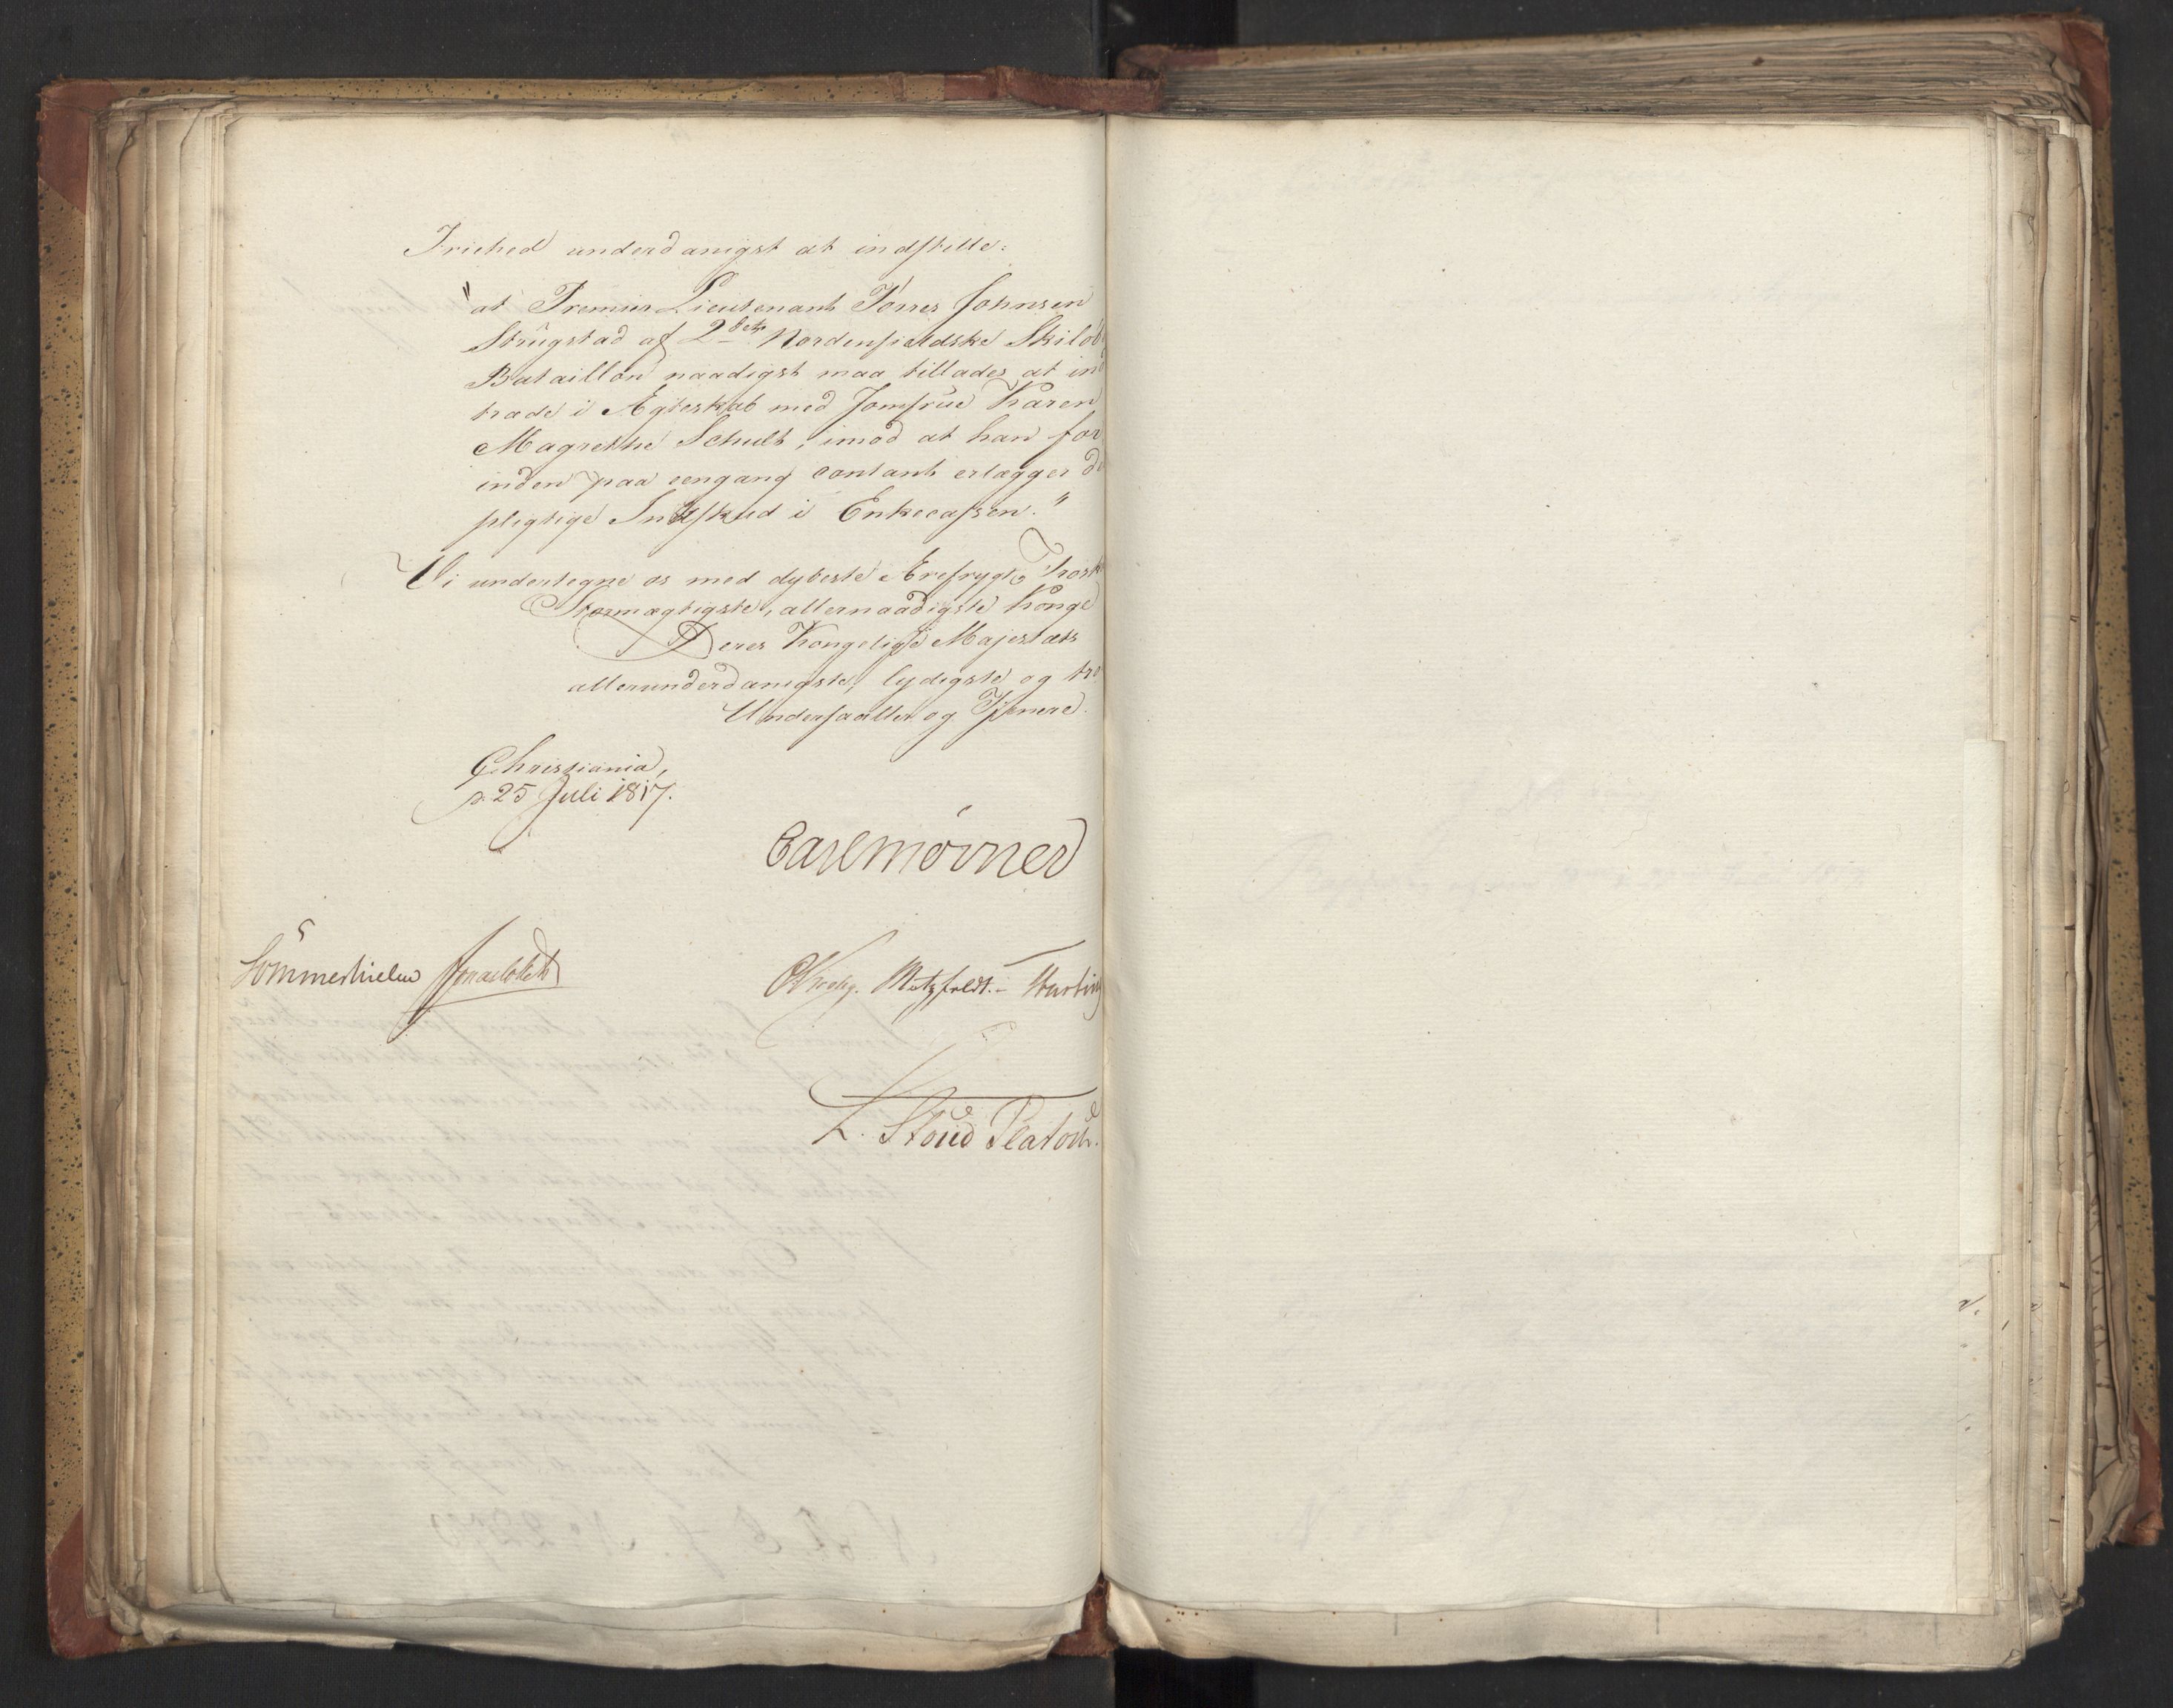 Friehed underdanigst at indstille:
"at Premier Lieutenant Torres Johnsen
Strügstad af 2det Nordenfieldske Skilöb
Bataillon naadigst maa tillades at ind
træde i Ægteskab med Jomfrue Karen
Magrethe Schult, imod at han for
inden paa eengang contant erlægger de
pligtige Indskud i Enkecassen."
Vi undertegne os med dybeste Ærefrygt,
Stormægtigste, allernaadigste Konge
Deres Kongelige Majestæts
allerunderdanigste, lydigste og tro
Undersaatter og Tjenere.
Christiania,
d. 25 Juli 1817.
Carl Mörner
Sommerhielm
Krohg. Motzfeldt.
L. Stoud Platou.